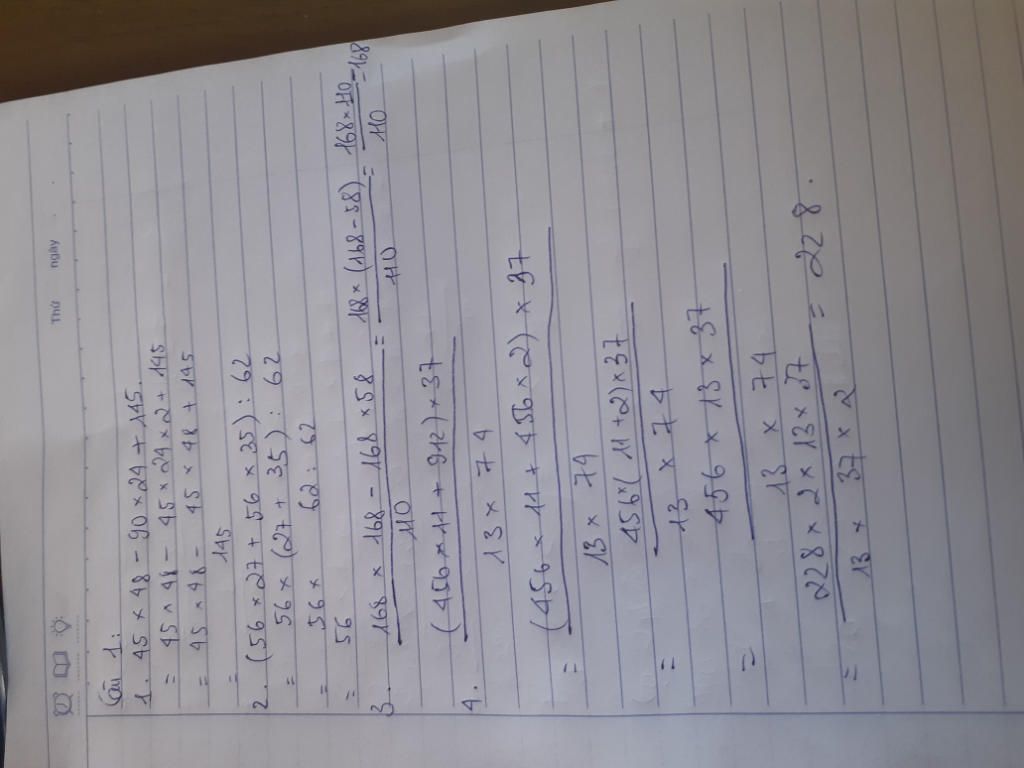 Thứ ngày
Câu 1:
1. 45 × 48 - 90 × 24 + 145.
= 45 × 48 - 45 × 24 × 2 + 145
= 45 × 48 - 45 × 48 + 145
= 145
2. (56 × 27 + 56 × 35) : 62
= 56 × (27 + 35) : 62
= 56 × 62 : 62
= 56
3. (168 × 168 - 168 × 58)/110 = (168 × (168 - 58))/110 = (168 × 110)/110 = 168
4. ((456 × 11 + 912) × 37)/(13 × 74)
= ((456 × 11 + 456 × 2) × 37)/(13 × 74)
= (456 × (11 + 2) × 37)/(13 × 74)
= (456 × 13 × 37)/(13 × 74)
= (228 × 2 × 13 × 37)/(13 × 37 × 2) = 228.